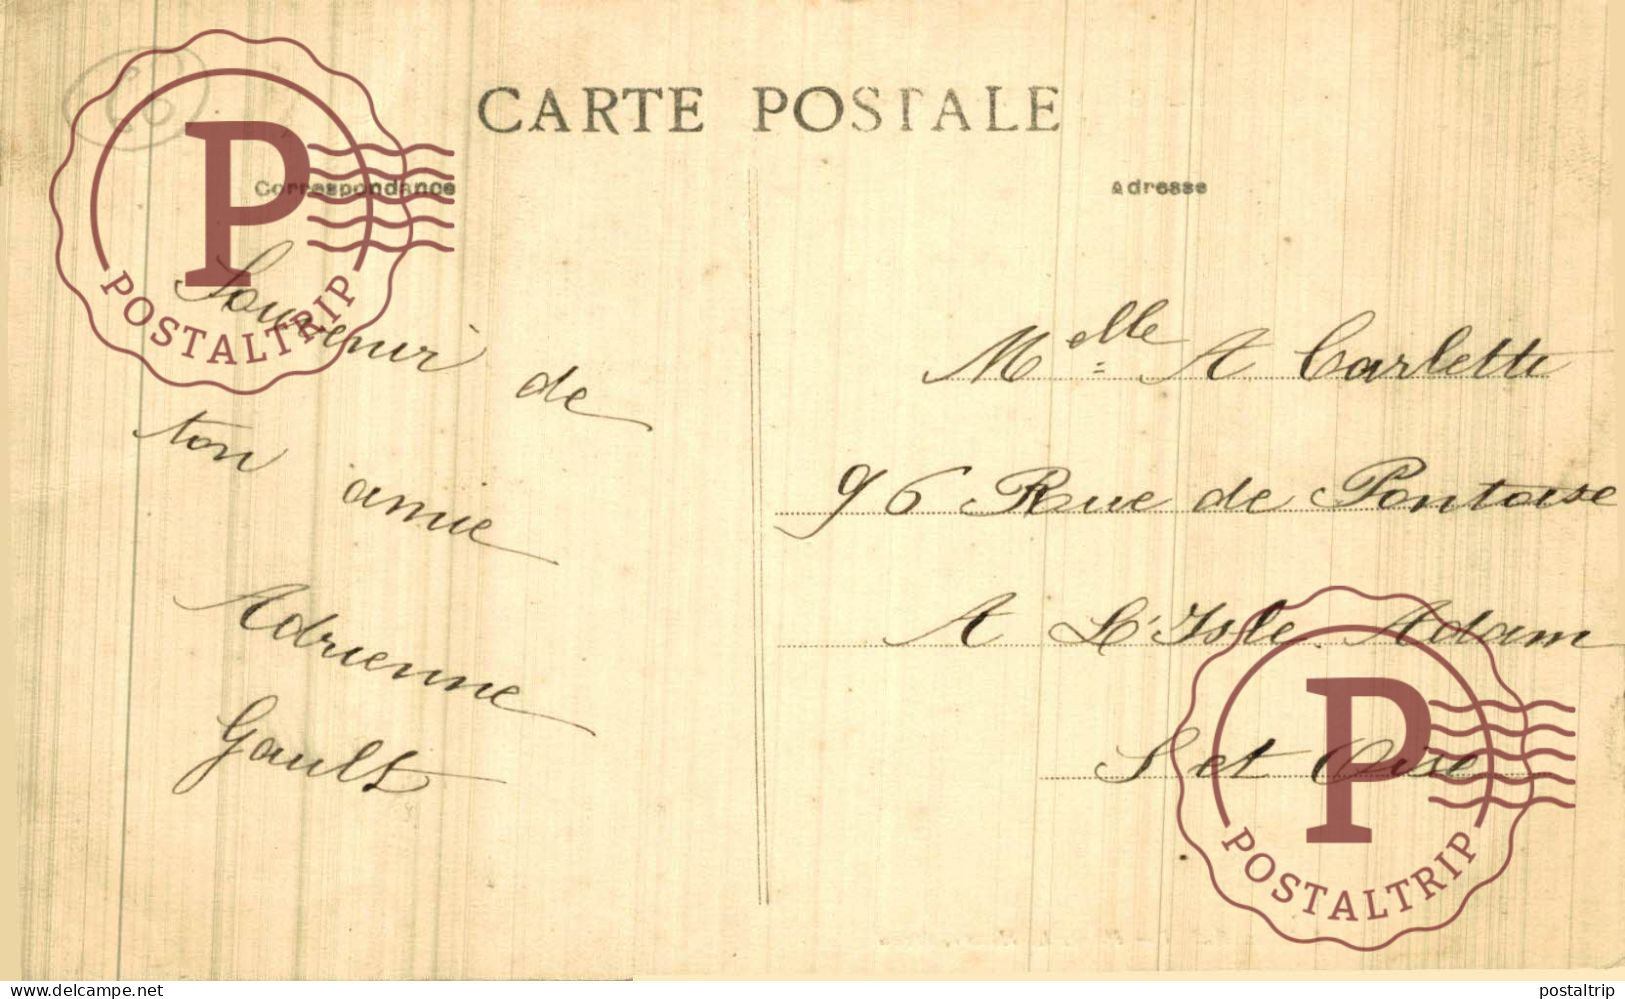 CARTE POSTALE
Correspondance
Adresse
Souvenir de
ton amie
Adrienne
Gault
Melle A Carlette
96 Rue de Pontoise
A L'Isle Adam
S et Oise
P
POSTALTRIP
P
POSTALTRIP
www.delcampe.net
postaltrip